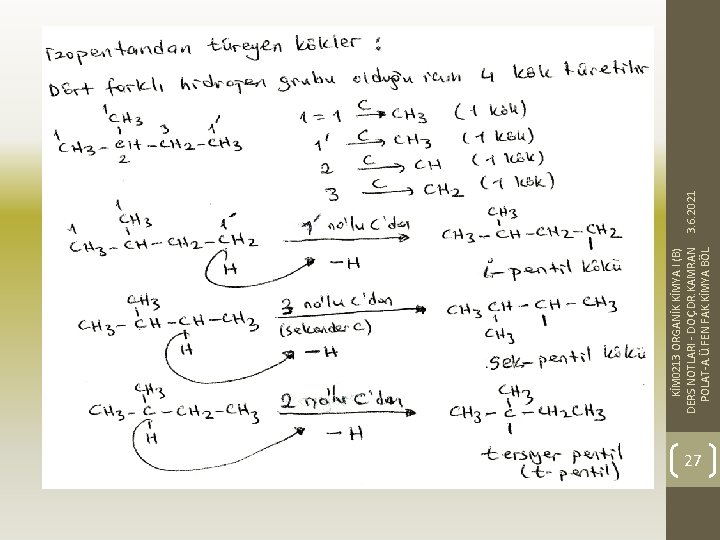 İzopentandan türeyen kökler :
Dört farklı hidrojen grubu olduğu için 4 kök türetilir
1 CH3
1 CH3 - CH - CH2 - CH3 1'
2 3
1 = 1 C → CH3 (1 kök)
1' C → CH3 (1 kök)
2 C → CH (1 kök)
3 C → CH2 (1 kök)
1 CH3
1 CH3 - CH - CH2 - CH2 1'
H
1' no'lu C'dan
- H
CH3
CH3 - CH - CH2 - CH2
i - pentil kökü
CH3
CH3 - CH - CH - CH3
H
3 no'lu C'dan
(sekonder C)
- H
CH3 CH - CH - CH3
CH3
sek - pentil kökü
CH3
CH3 - C - CH2 - CH3
H
2 no'lu C'dan
- H
CH3
CH3 - C - CH2CH3
tersiyer pentil
(t - pentil)
KİM0213 ORGANİK KİMYA I (B)
DERS NOTLARI - DOÇ.DR.KAMRAN 3.6.2021
POLAT-A.Ü.FEN FAK.KİMYA BÖL
27